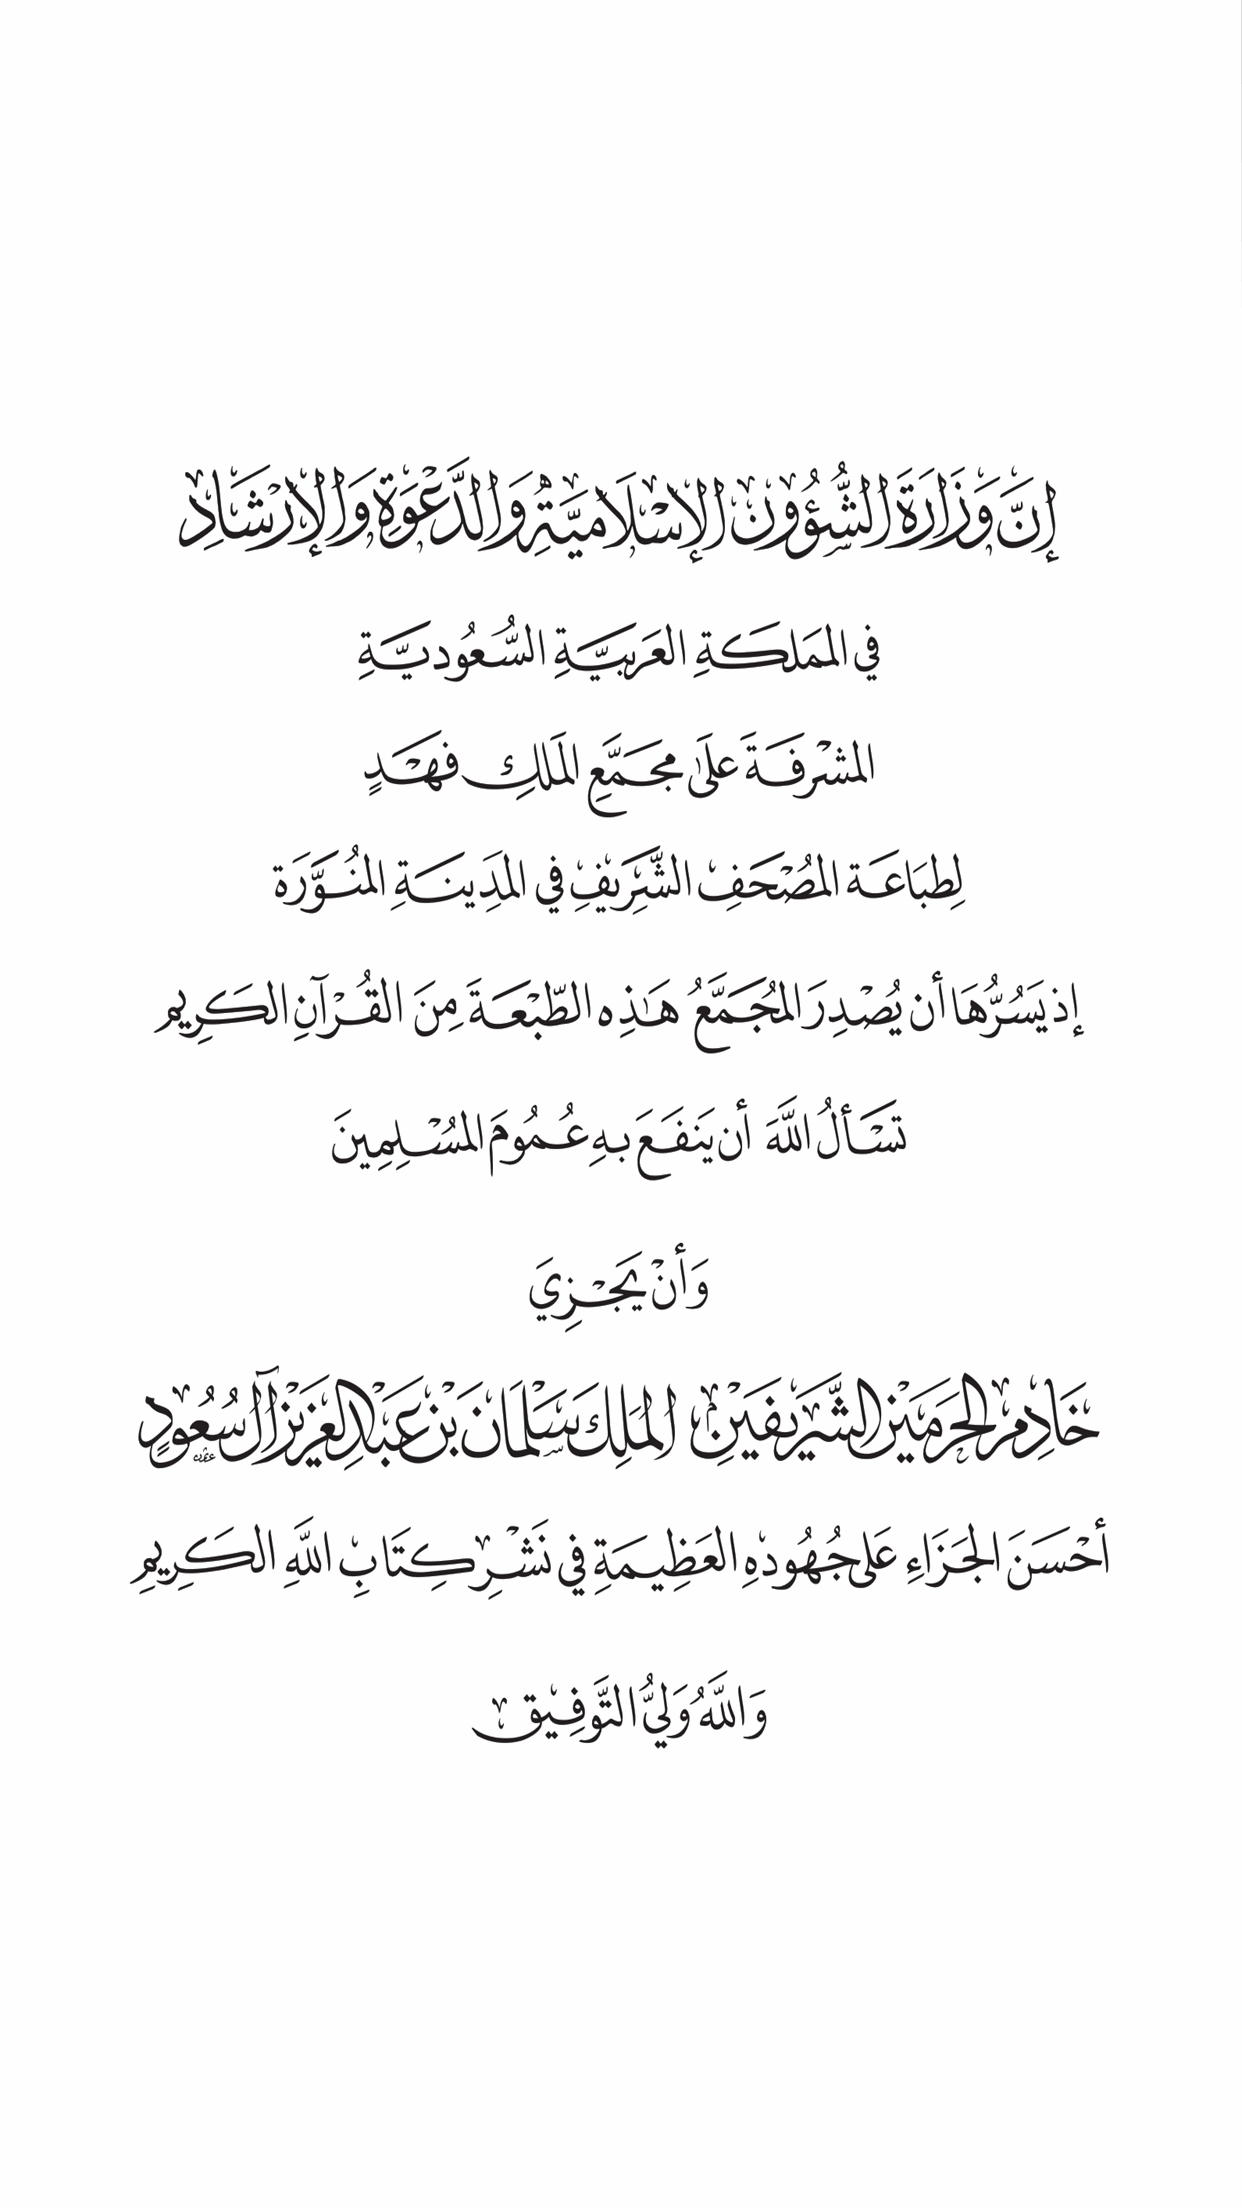 إِنَّ وَزَارَةَ الشُّؤُونِ الإِسْلَامِيَّةِ وَالدَّعْوَةِ وَالإِرْشَادِ
في المَملَكَةِ العَرَبيَّةِ السُّعُوديَّةِ
المشْرفَةَ عَلَىٰ مجَمَّعِ المَلكِ فَهْدٍ
لِطبَاعَة المُصْحَفِ الشَّرِيفِ في المَدِينَةِ المنُوَّرَة
إِذ يَسُرُّهَا أَن يُصْدِرَ المُجَمَّعُ هَٰذِه الطّبْعَةَ مِنَ القُرْآنِ الكَرِيم
تَسْأَلُ اللَّهَ أَن يَنفَعَ بهِ عُمُومَ المسُْلِمِينَ
وَأَنْ يَجْزِيَ
خَادِم الحَرَمَيْن الشَّرِيفَيْنِ المَلِكَ سَلْمَان بْنَ عَبْدِ العَزِيْز آل سُعُودٍ
أَحْسَنَ الجَزَاءِ عَلَى جُهُودهِ العَظِيمَةِ في نَشْرِ كِتَابِ اللَّهِ الكَرِيمِ
وَاللَّهُ وَليُّ التَّوفِيق